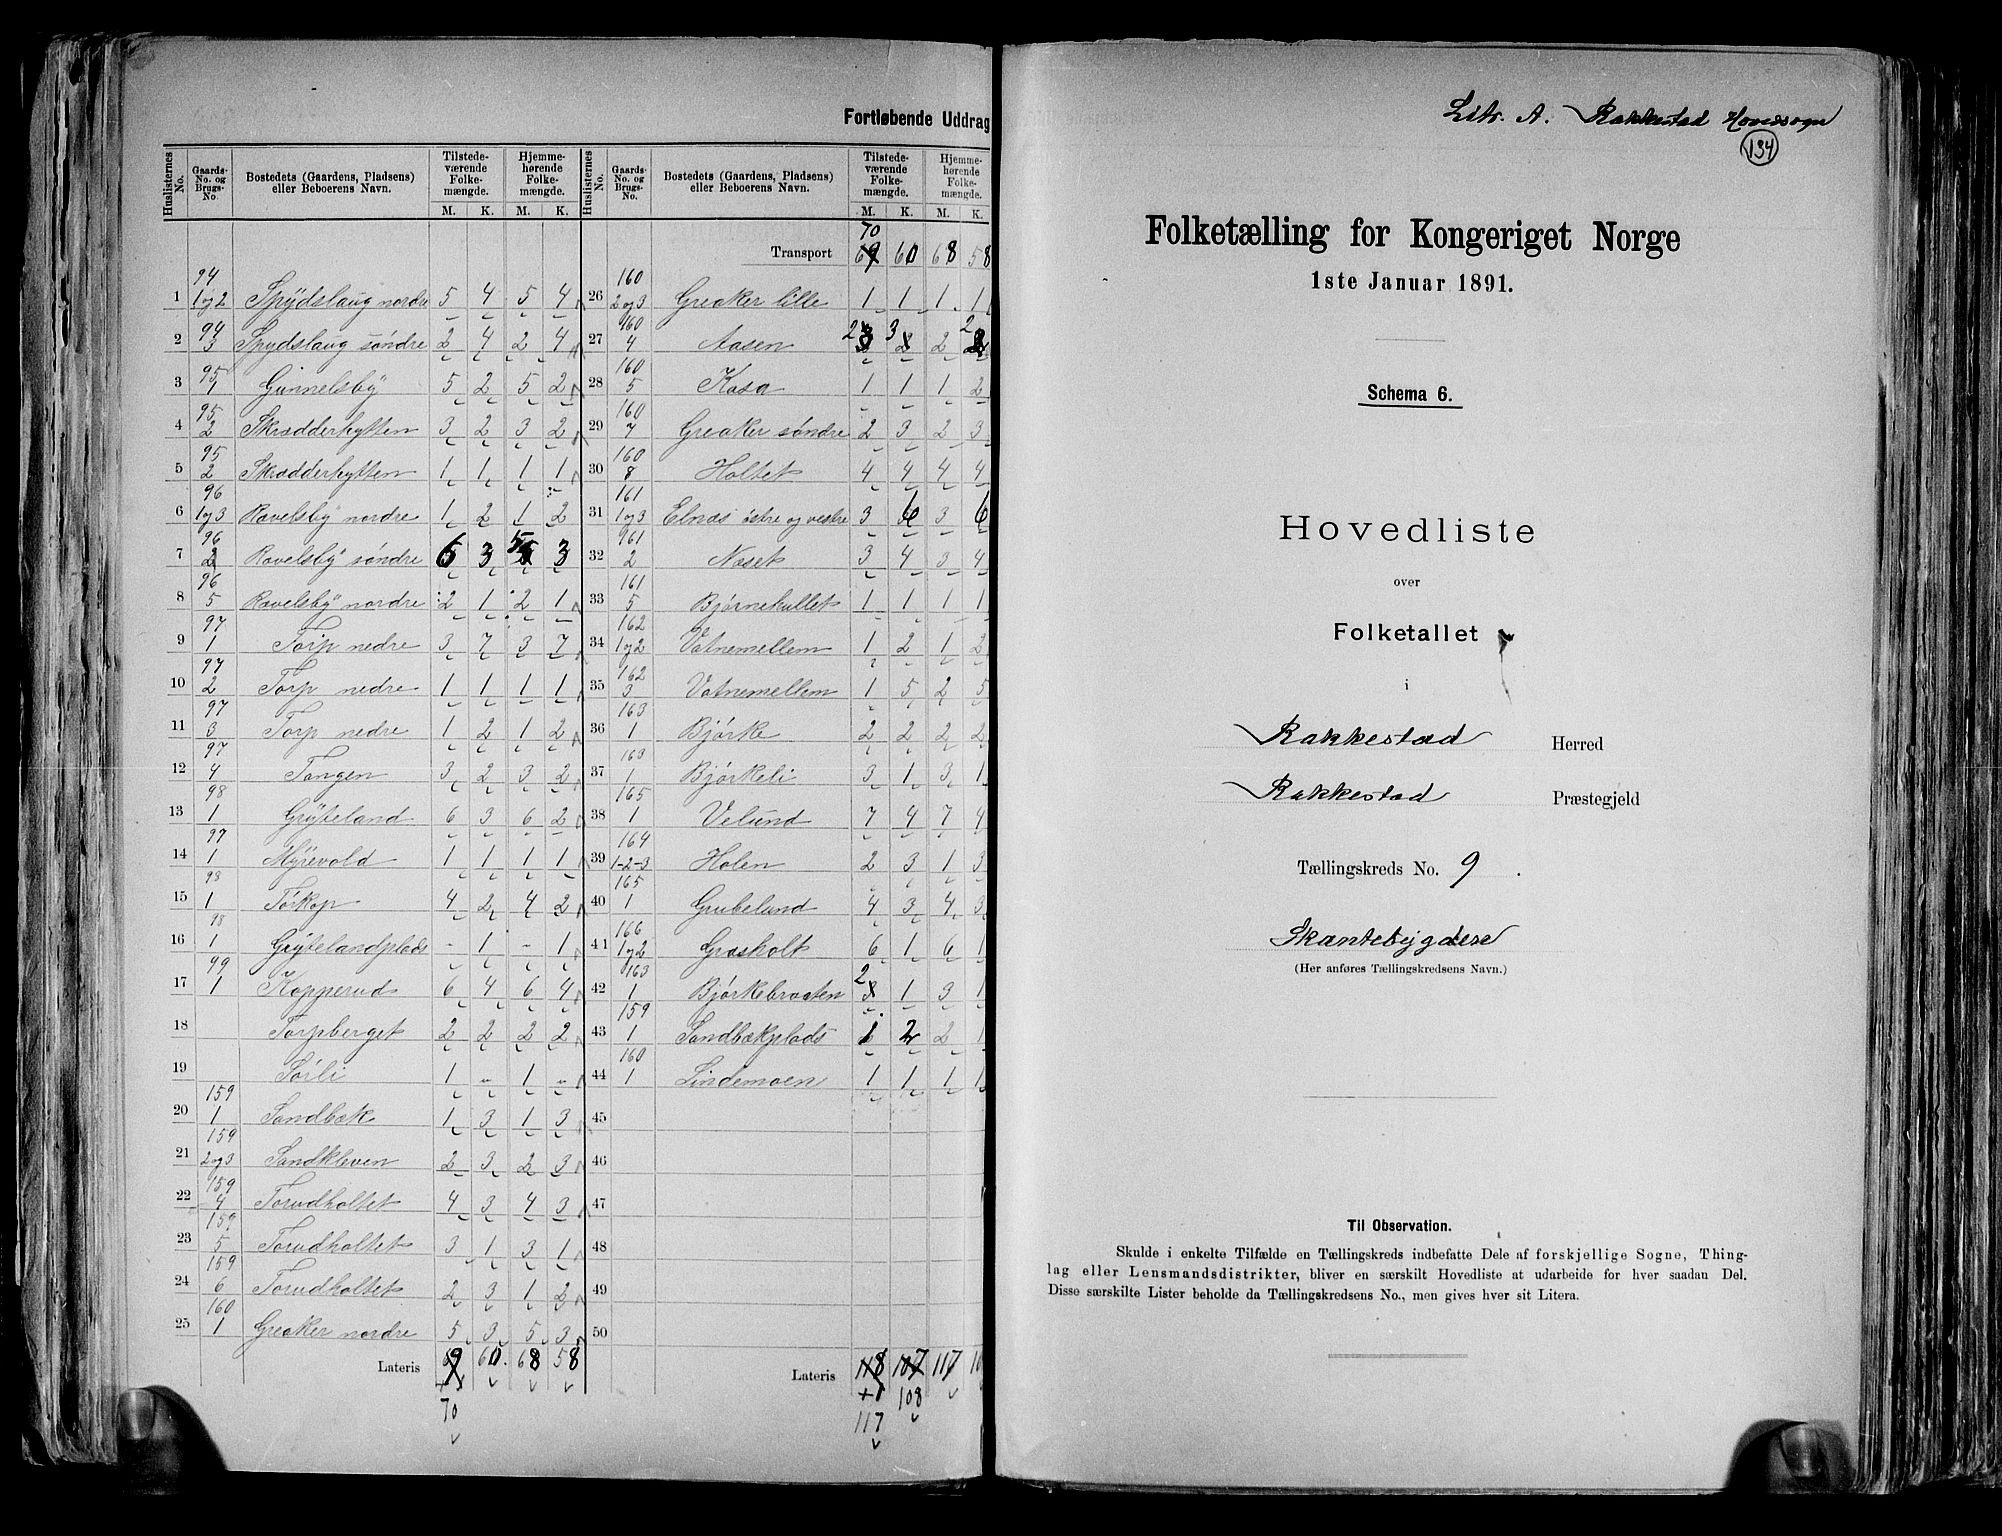 Fortløbende Uddrag
Huslisternes No. | Gaards-No. og Brugs-No. | Bostedets (Gaardens, Pladsens) eller Beboerens Navn. | Tilstedeværende Folkemængde. M. K. | Hjemmehørende Folkemængde. M. K.
1 | 94 1og2 | Spydslaug nordre | 5 | 4 | 5 | 4
2 | 94 3 | Spydslaug søndre | 2 | 4 | 2 | 4
3 | 95 1 | Gunnelsby | 5 | 2 | 5 | 2
4 | 95 2 | Skrædderhytten | 3 | 2 | 3 | 2
5 | 95 2 | Skrædderhytten | 1 | 1 | 1 | 1
6 | 96 1og3 | Ravelsby nordre | 1 | 2 | 1 | 2
7 | 96 2 | Ravelsby søndre | 6 | 3 | 5 | 3
8 | 96 5 | Ravelsby nordre | 2 | 1 | 2 | 1
9 | 97 1 | Torp nedre | 3 | 7 | 3 | 7
10 | 97 2 | Torp nedre | 1 | 1 | 1 | 1
11 | 97 3 | Torp nedre | 1 | 2 | 1 | 2
12 | 97 4 | Tangen | 3 | 2 | 3 | 2
13 | 98 1 | Grýteland | 6 | 3 | 6 | 2
14 | 97 1 | Mýrevold | 1 | 1 | 1 | 1
15 | 98 1 | Torkop | 4 | 2 | 4 | 2
16 | 98 1 | Grýtelandplads | - | 1 | - | 1
17 | 99 1 | Kopperud | 6 | 4 | 6 | 4
18 | Torpberget | 2 | 2 | 2 | 2
19 | Sørli | 1 | " | 1 | "
20 | 159 1 | Sandbæk | 1 | 3 | 1 | 3
21 | 159 2og3 | Sandkleven | 2 | 3 | 2 | 3
22 | 159 4 | Torudholtet | 4 | 3 | 4 | 3
23 | 159 5 | Torudholtet | 3 | 1 | 3 | 1
24 | 159 6 | Torudholtet | 2 | 3 | 1 | 2
25 | 160 1 | Greaker nordre | 5 | 3 | 5 | 3
Lateris | 69 | 60 | 68 | 58
+1
70
Huslisternes No. | Gaards-No. og Brugs-No. | Bostedets (Gaardens, Pladsens) eller Beboerens Navn. | Tilstedeværende Folkemængde. M. K. | Hjemmehørende Folkemængde. M. K.
70
Transport | 69 | 60 | 68 | 58
26 | 160 2og3 | Greaker lille | 1 | 1 | 1 | 1
27 | 160 4 | Aasen | 2 | 3 | 2 | 2
28 | 160 5 | Kasa | 1 | 1 | 1 | 2
29 | 160 7 | Greaker søndre | 2 | 3 | 2 | 3
30 | 160 8 | Holtet | 4 | 4 | 4 | 4
31 | 161 1og3 | Elnæs østre og vestre | 3 | 6 | 3 | 6
32 | 161 2 | Næset | 3 | 4 | 3 | 4
33 | 161 5 | Bjørnehullet | 1 | 1 | 1 | 1
34 | 162 1og2 | Vatnemellem | 1 | 2 | 1 | 2
35 | 162 3 | Vatnemellem | 1 | 5 | 2 | 5
36 | 163 1 | Bjørke | 2 | 2 | 2 | 2
37 | 163 1 | Bjørkeli | 3 | 1 | 3 | 1
38 | 165 1 | Velund | 7 | 4 | 7 | 4
39 | 164 1-2-3 | Holen | 2 | 3 | 1 | 3
40 | 165 1 | Grubelund | 4 | 3 | 4 | 3
41 | 166 1og2 | Grasholt | 6 | 1 | 6 | 1
42 | 163 1 | Bjørkebraaten | 2 | 1 | 3 | 1
43 | 159 1 | Sandbækplads | 1 | 2 | 2 | 1
44 | 160 1 | Lindemoen | 1 | 1 | 1 | 1
45
46
47
48
49
50
Lateris | 118 | 107 | 117 | 10
108
117
Litr. A. Rakkestad Hovedsogn
134
Folketælling for Kongeriget Norge
1ste Januar 1891.
Schema 6.
Hovedliste
over
Folketallet
i
Rakkestad Herred
Rakkestad Præstegjeld
Tællingskreds No. 9.
Skantebygden
(Her anføres Tællingskredsens Navn.)
Til Observation.
Skulde i enkelte Tilfælde en Tællingskreds indbefatte Dele af forskjellige Sogne, Thing-
lag eller Lensmandsdistrikter, bliver en særskilt Hovedliste at udarbeide for hver saadan Del.
Disse særskilte Lister beholde da Tællingskredsens No., men gives hver sit Litera.